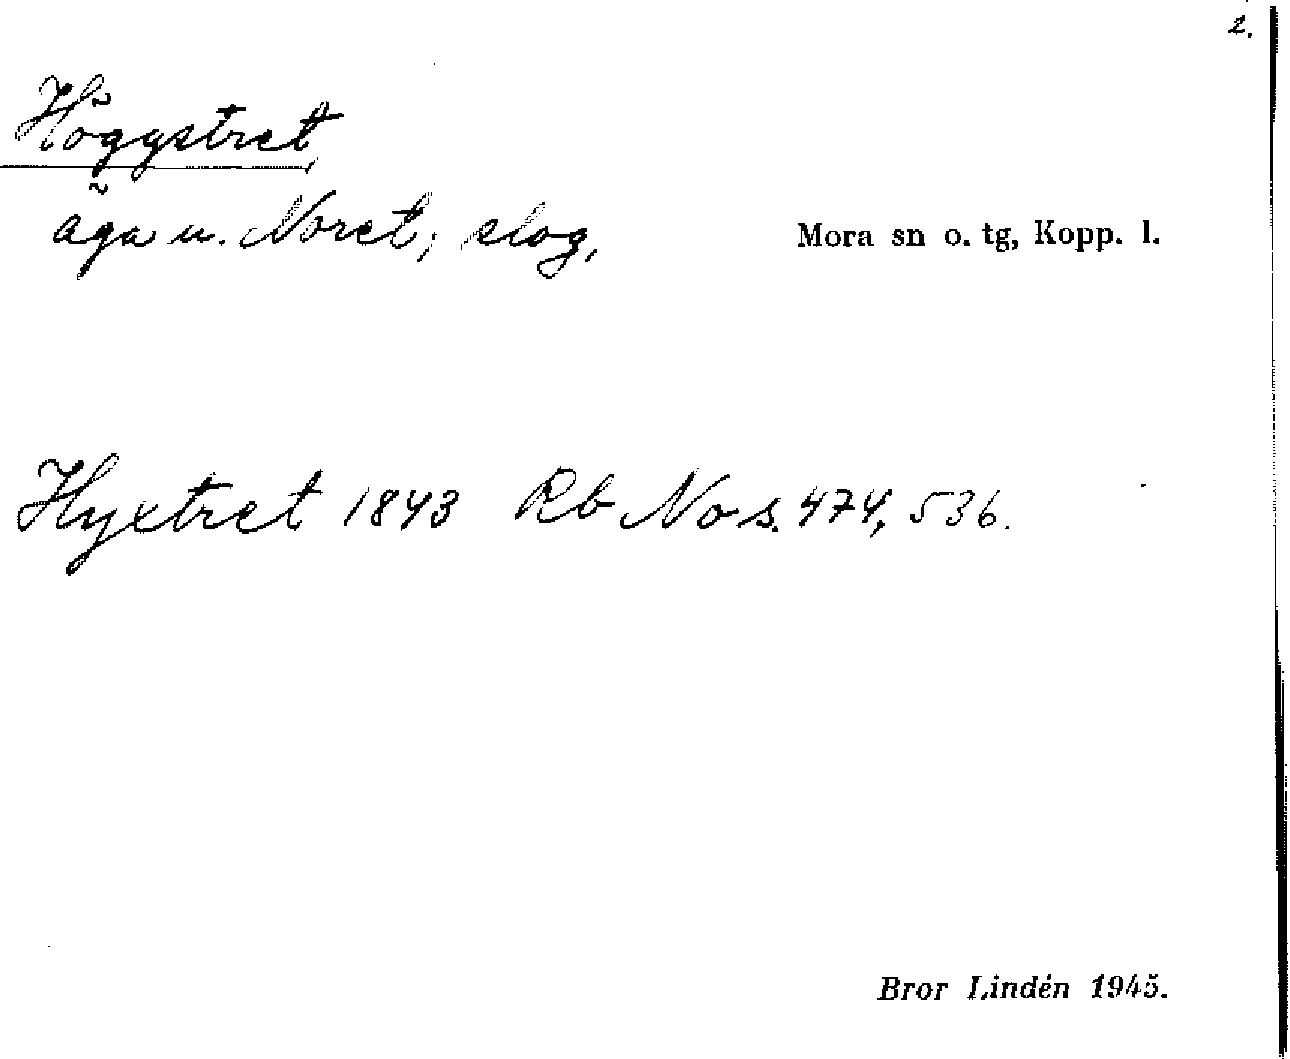 2.
Höggstret
äga u. Noret; slog,
Mora sn o. tg, Kopp. l.
Hyxtret 1843 Rb No s. 474, 536.
Bror Lindén 1945.